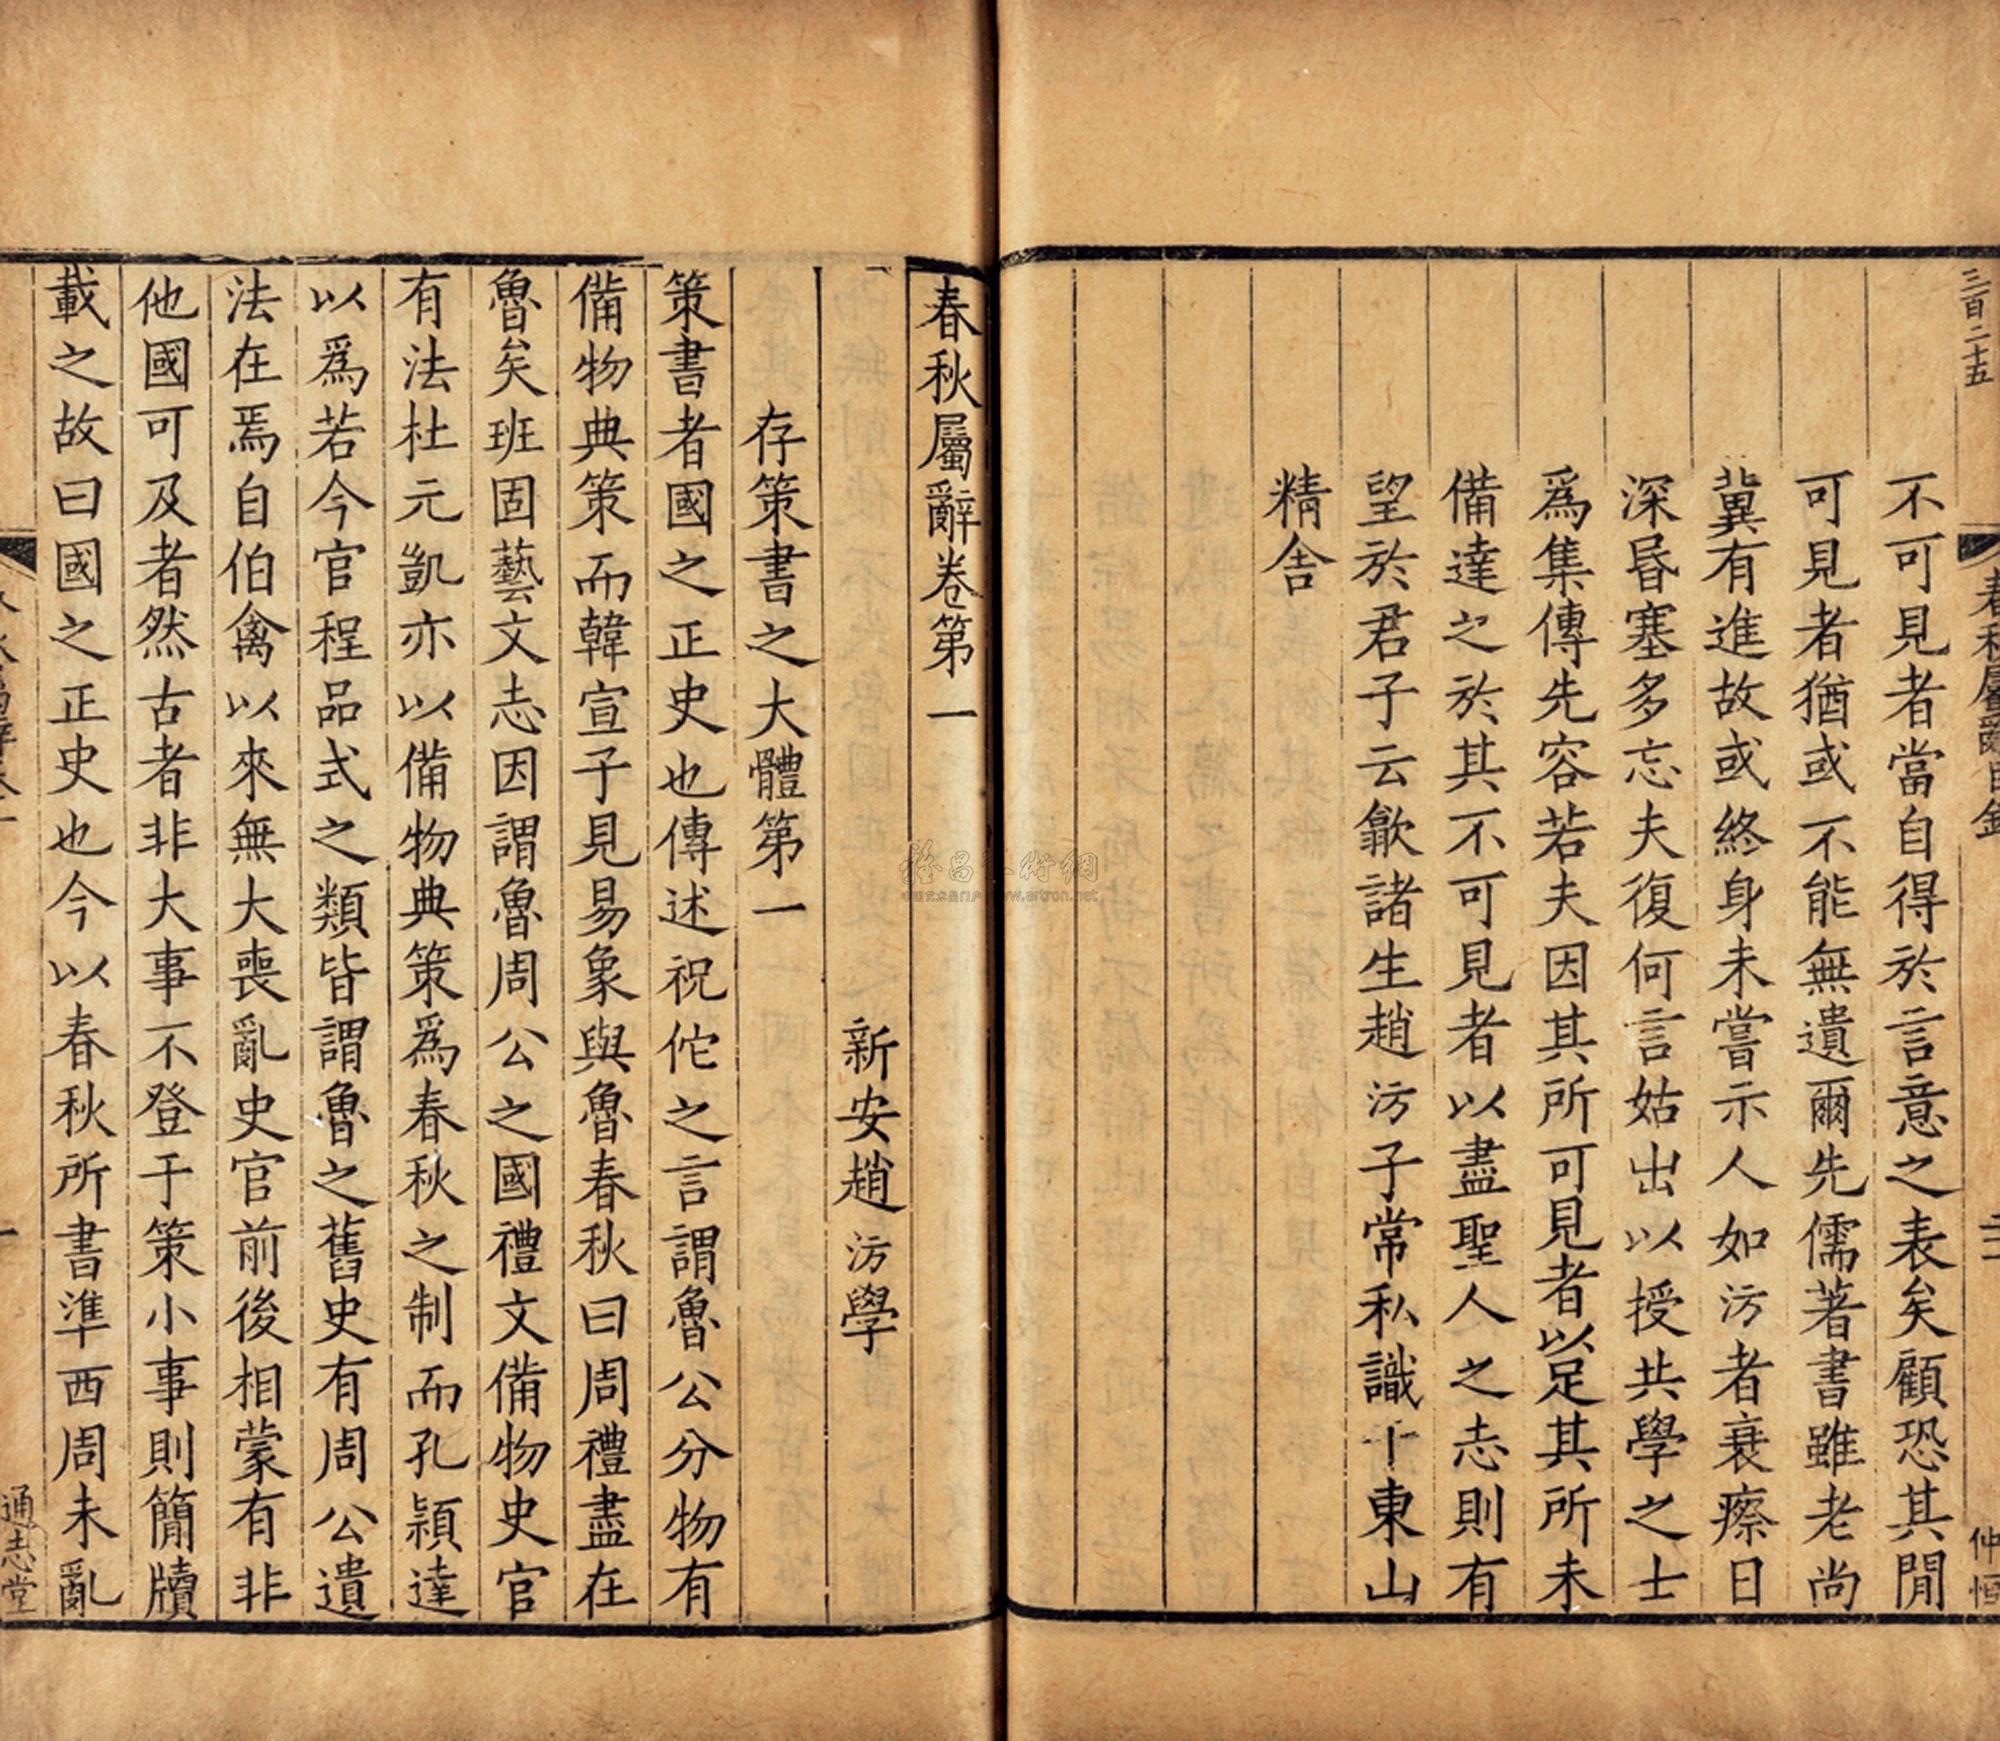 三百二十五
不可見者當自得於言意之表矣顧恐其閒
可見者猶或不能無遺爾先儒著書雖老尚
冀有進故或終身未嘗示人如汸者衰瘵日
深昏塞多忘夫復何言姑出以授共學之士
為集傳先容若夫因其所可見者以足其所未
備達之於其不可見者以盡聖人之志則有
望於君子云歙諸生趙汸子常私識于東山
精舎
春秋屬辭目錄
仲恒
春秋屬辭卷第一
新安趙汸學
存策書之大體第一
策書者國之正史也傳述祝佗之言謂魯公分物有
備物典策而韓宣子見易象與魯春秋曰周禮盡在
魯矣班固藝文志因謂魯周公之國禮文備物史官
有法杜元凱亦以備物典策爲春秋之制而孔穎達
以爲若今官程品式之類皆謂魯之舊史有周公遺
法在焉自伯禽以來無大喪亂史官前後相蒙有非
他國可及者然古者非大事不登于策小事則簡牘
載之故曰國之正史也今以春秋所書準西周未亂
一
通志堂
www.artron.net